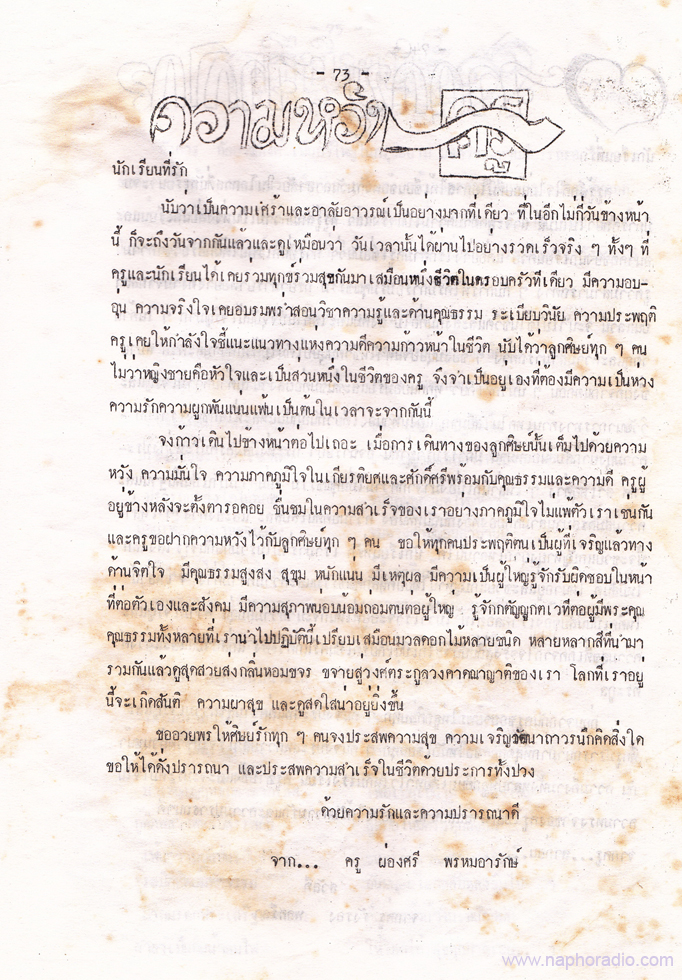 - 73 -
ความหวัง
ครู
นักเรียนที่รัก
นับว่าเป็นความเศร้าและอาลัยอาวรณ์เป็นอย่างมากทีเดียว ที่ในอีกไม่กี่วันข้างหน้า
นี้ ก็จะถึงวันจากกันแล้วและดูเหมือนว่า วันเวลานั้นได้ผ่านไปอย่างรวดเร็วจริง ๆ ทั้งๆ ที่
ครูและนักเรียนได้เคยร่วมทุกข์ร่วมสุขกันมาเสมือนหนึ่งชีวิตในครอบครัวทีเดียว มีความอบ-
อุ่น ความจริงใจเคยอบรมพร่ำสอนวิชาความรู้และด้านคุณธรรม ระเบียบวินัย ความประพฤติ
ครูเคยให้กำลังใจชี้แนะแนวทางแห่งความคิดความก้าวหน้าในชีวิต นับได้ว่าลูกศิษย์ทุก ๆ คน
ไม่ว่าหญิงชายคือหัวใจและเป็นส่วนหนึ่งในชีวิตของครู จึงจำเป็นอยู่เองที่ต้องมีความเป็นห่วง
ความรักความผูกพันแน่นแฟ้นเป็นต้นในเวลาจะจากกันนี้
จงก้าวเดินไปข้างหน้าต่อไปเถอะ เมื่อการเดินทางของลูกศิษย์นั้นเต็มไปด้วยความ
หวัง ความมั่นใจ ความภาคภูมิใจในเกียรติยศและศักดิ์ศรีพร้อมกับคุณธรรมและความดี ครูผู้
อยู่ข้างหลังจะตั้งตารอคอย ชื่นชมในความสำเร็จของเราอย่างภาคภูมิใจไม่แพ้ตัวเราเช่นกัน
และครูขอฝากความหวังไว้กับลูกศิษย์ทุก ๆ คน ขอให้ทุกคนประพฤติตนเป็นผู้ที่เจริญแล้วทาง
ด้านจิตใจ มีคุณธรรมสูงส่ง สุขุม หนักแน่น มีเหตุผล มีความเป็นผู้ใหญ่รู้จักรับผิดชอบในหน้า
ที่ต่อตัวเองและสังคม มีความสุภาพนอบน้อมถ่อมตนต่อผู้ใหญ่ รู้จักกตัญญูกตเวทีต่อผู้มีพระคุณ
คุณธรรมทั้งหลายที่เรานำไปปฏิบัตินี้เปรียบเสมือนมวลดอกไม้หลายชนิด หลายหลากสีที่นำมา
รวมกันแล้วดูสุดสวยส่งกลิ่นหอมขจร ขจายสู่วงศ์ตระกูลวงศาคณาญาติของเรา โลกที่เราอยู่
นี้จะเกิดสันติ ความผาสุข และดูสดใสน่าอยู่ยิ่งขึ้น
ขออวยพรให้ศิษย์รักทุก ๆ คนจงประสพความสุข ความเจริญวัฒนาถาวรนึกคิดสิ่งใด
ขอให้ได้ดั่งปรารถนา และประสพความสำเร็จในชีวิตด้วยประการทั้งปวง
ด้วยความรักและความปรารถนาดี
จาก... ครู ผ่องศรี พรหมอารักษ์
www.naphoradio.com